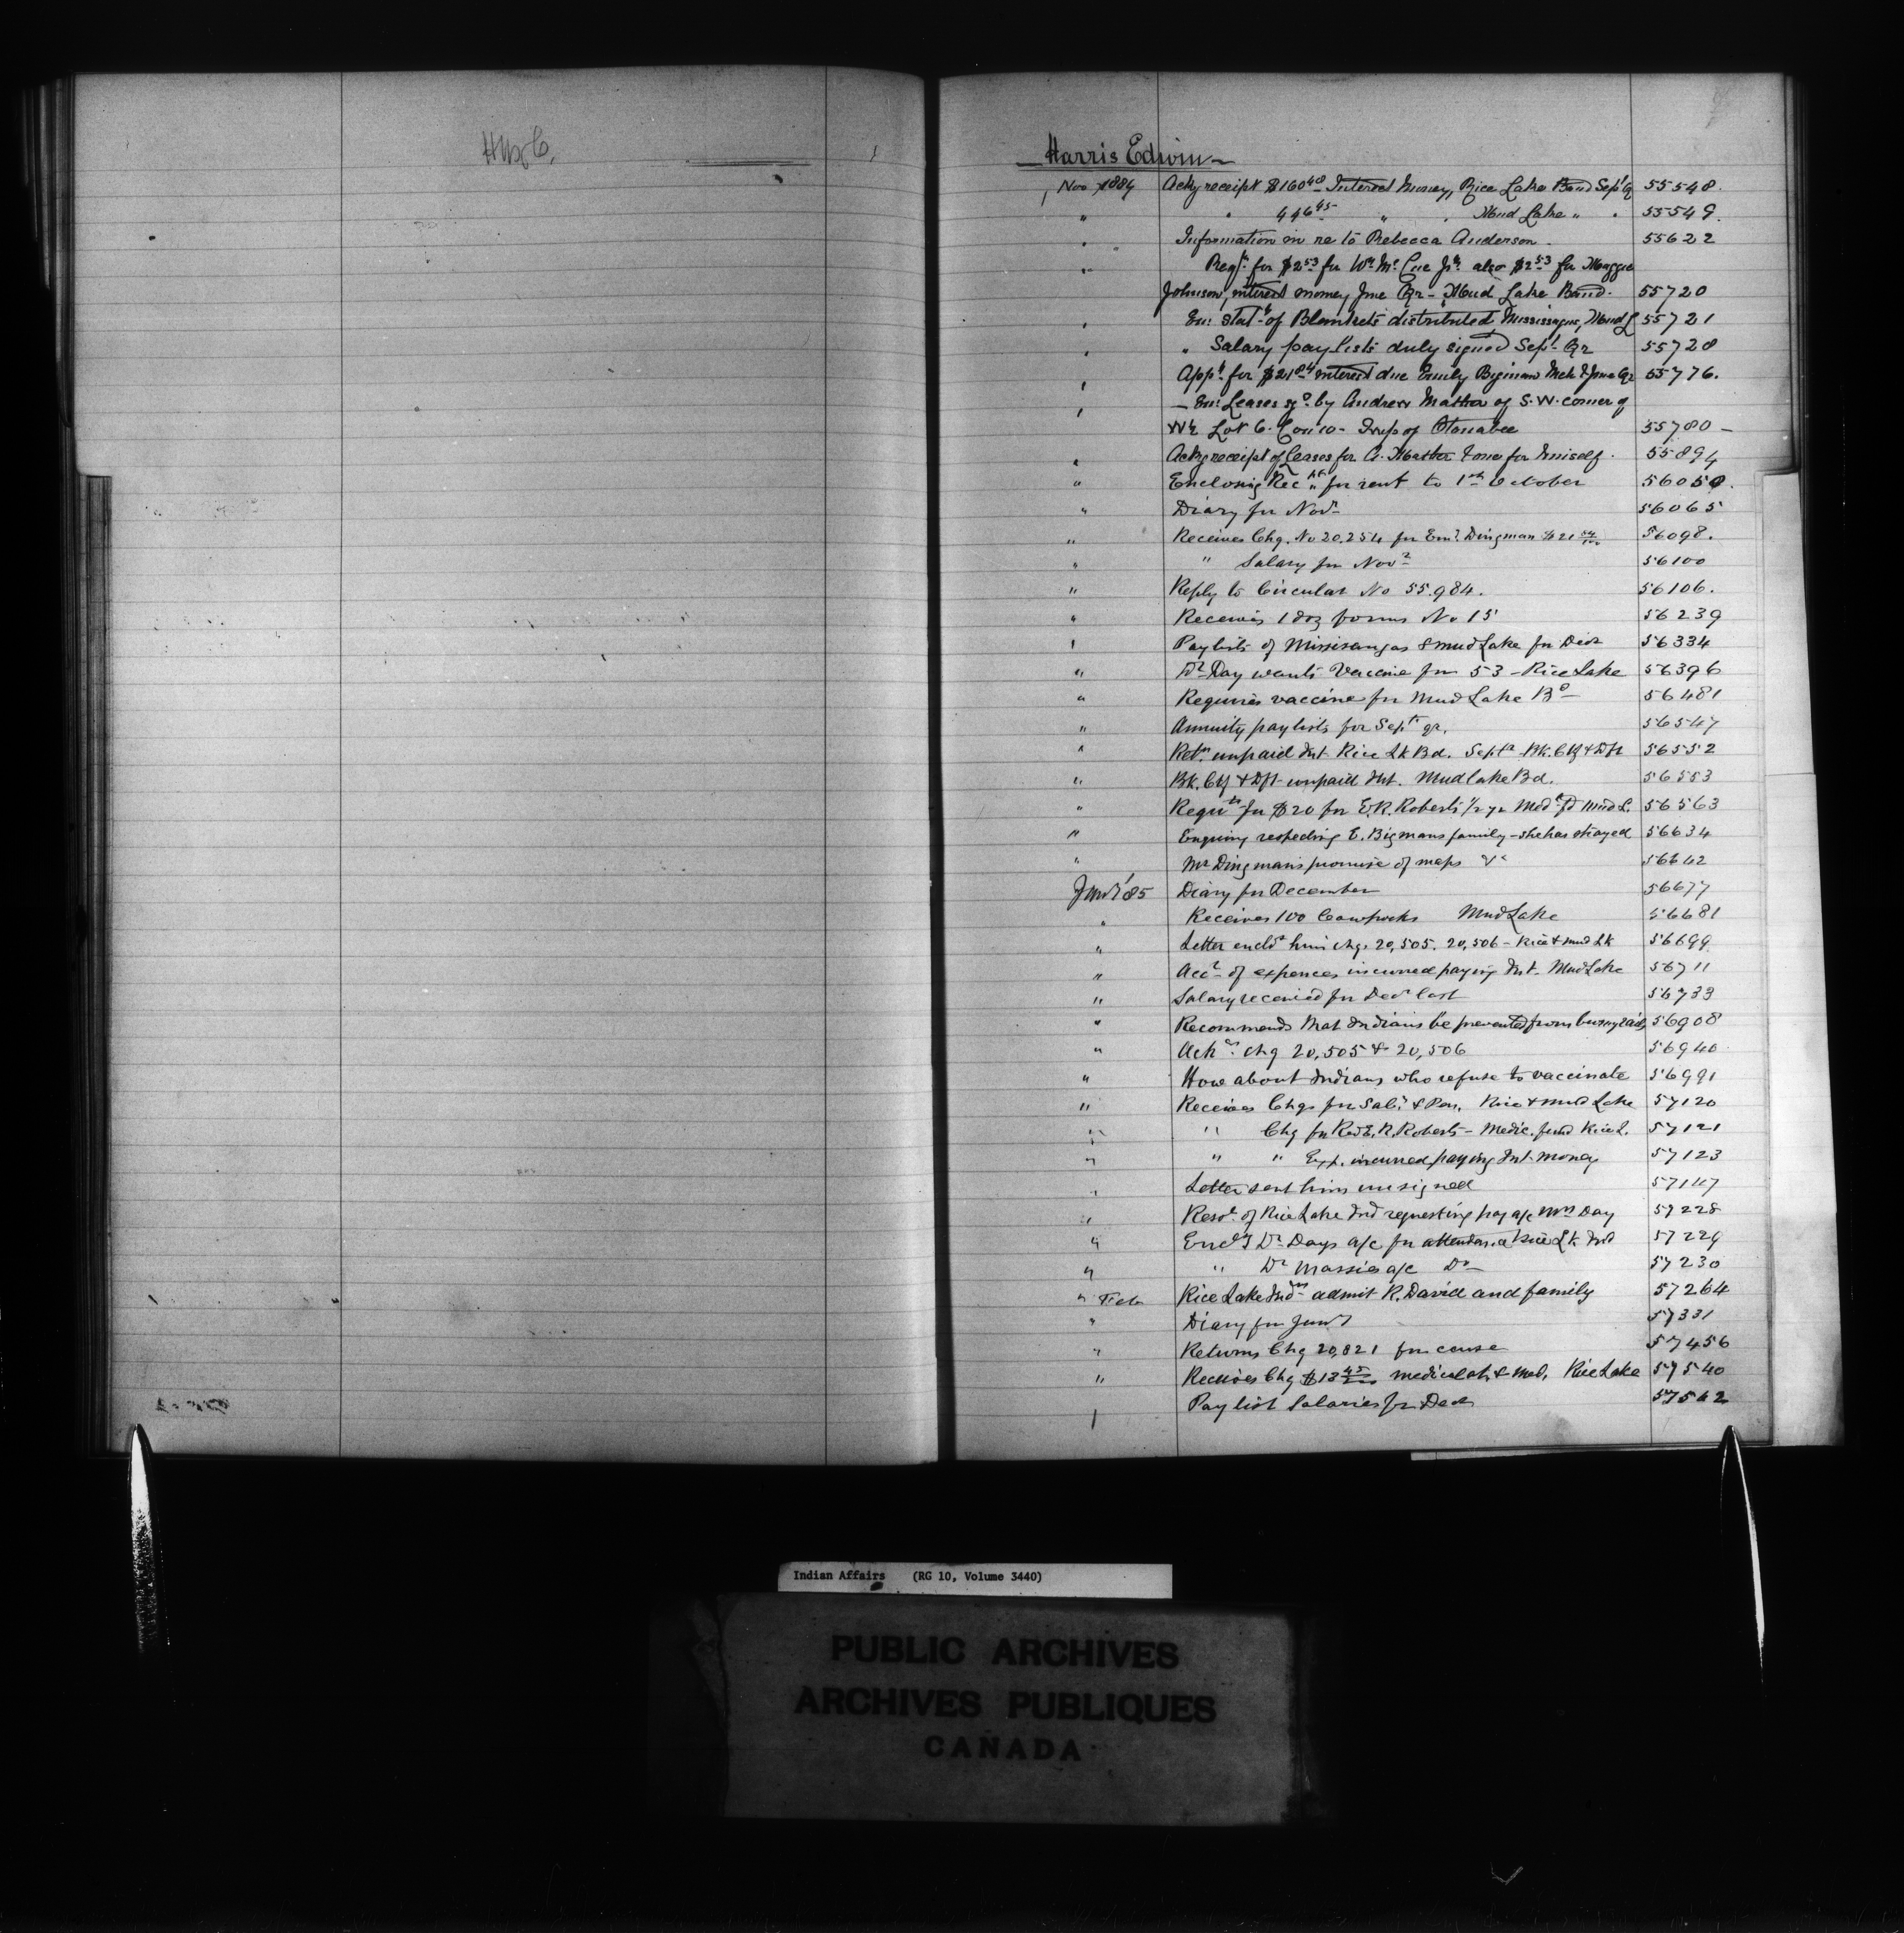 Harris Edwin
Nov 1884 Ackg receipt $160 48 Interest Money, Rice Lake Band Sept Qr 55548.
" " 446 45 " " Mud Lake " " 55549.
" Information in re to Rebecca Anderson - 55622
" Reqn for $2 53 for Wm Mc Cue Jr also $2 53 for Maggie
Johnson, interest money June Qr - Mud Lake Band - 55720
" Enc. Stat of Blankets distributed Mississagua, Mud L 55721
" " Salary pay lists duly signed Sept Qr 55728
" Appn for $21 84 interest due Emily Bigman Mch & June Qr 55776.
" - Enc. Leases sgd by Andrew Mather of S.W. corner of
W½ Lot 6. Con 10 - Twp of Otonabee 55780 -
" Ackg receipt of Leases for A. Mather & one for himself. 55894
" Enclosing Rec for rent to 1st October 56050.
" Diary for Novr 56065
" Receives Chq. No 20.254 for Em. Dingman $21 84/100 56098.
" " Salary for Novr 56100
" Reply to Circular No 55.984. 56106.
" Receives 1 doz forms No 15 56239
" Paylists of Missisaugas & Mud Lake for Decr 56334
" Dr Day wants Vaccine for 53 - Rice Lake 56396
" Requires vaccine for Mud Lake Bd 56481
" Annuity paylists for Sept qr. 56547
" Retn unpaid Int. Rice Lk Bd. Septr Bk. Ctf & Dft 56552
" Bk. Ctf & Dft unpaid Int. Mud lake Bd. 56553
" Requn for $20 for E.R. Roberts 1/2 yr Med fd Mud L. 56563
" Enquiry respecting E. Bigmans family - she has strayed 56634
" Mr Dingman's promise of maps &c 56642
Jany '85 Diary for December 56677
" Receives 100 Cowpocks Mud Lake 56681
" Letter encld him chq. 20,505. 20,506 - Rice & Mud Lk 56699
" Acct of expences incurred paying Int. Mud Lake 56711
" Salary received for Decr last 56733
" Recommends that Indians be prevented from burying 56908
" Ack chq 20,505 & 20,506 56940
" How about Indians who refuse to vaccinate 56991
" Receives Chqs for Sal. & Pen. Rice & Mud Lake 57120
" " Chq for Rev E.R. Roberts - Medic. fund Rice L. 57121
" " " Exp. incurred paying Int. money 57123
" Letter sent him unsigned 57147
" Resol. of Rice Lake Ind requesting pay a/c Day 57228
" Encl'g Dr Days a/c for attendance Rice Lk Ind 57229
" " Dr Massies a/c Do 57230
" Feb Rice Lake Indns admit R. David and family 57264
" Diary for Jany 57331
" Returns Chq 20,821 for cause 57456
" Receives Chq $13 45 medical at. & Med. Rice Lake 57540
" Pay list Salaries for Decr 57562
Indian Affairs (RG 10, Volume 3440)
PUBLIC ARCHIVES
ARCHIVES PUBLIQUES
CANADA